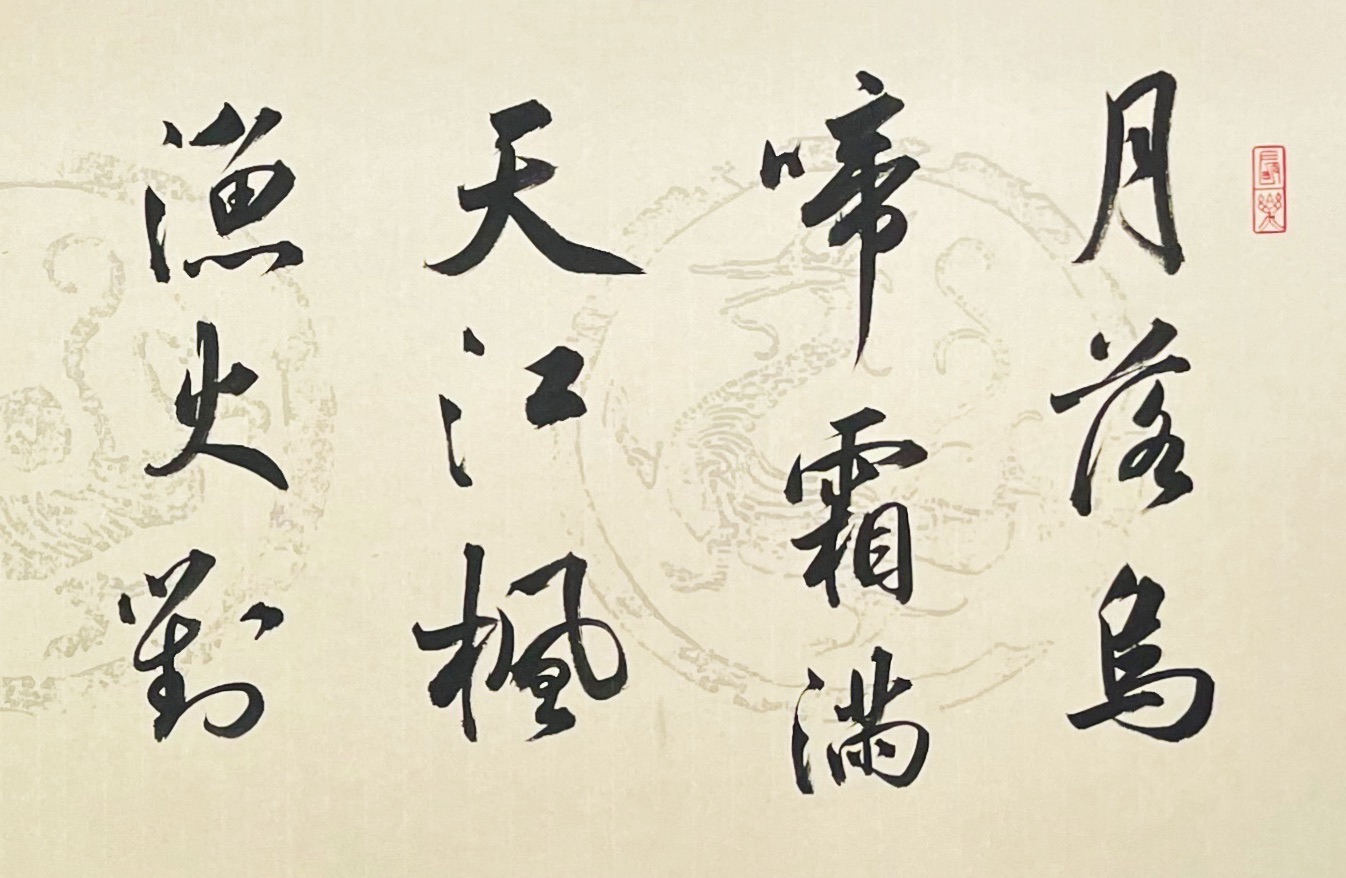 月落烏
啼霜滿
天江楓
漁火對